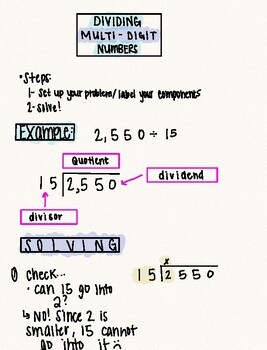 DIVIDING
MULTI-DIGIT
NUMBERS
• Steps:
1- Set up your problem/label your components
2- Solve!
Example: 2,550 ÷ 15
Quotient
15 2,550
dividend
divisor
SOLVING
① Check...
x
15 2550
• can 15 go into
2?
↳ No! Since 2 is
smaller, 15 cannot
go into it :(